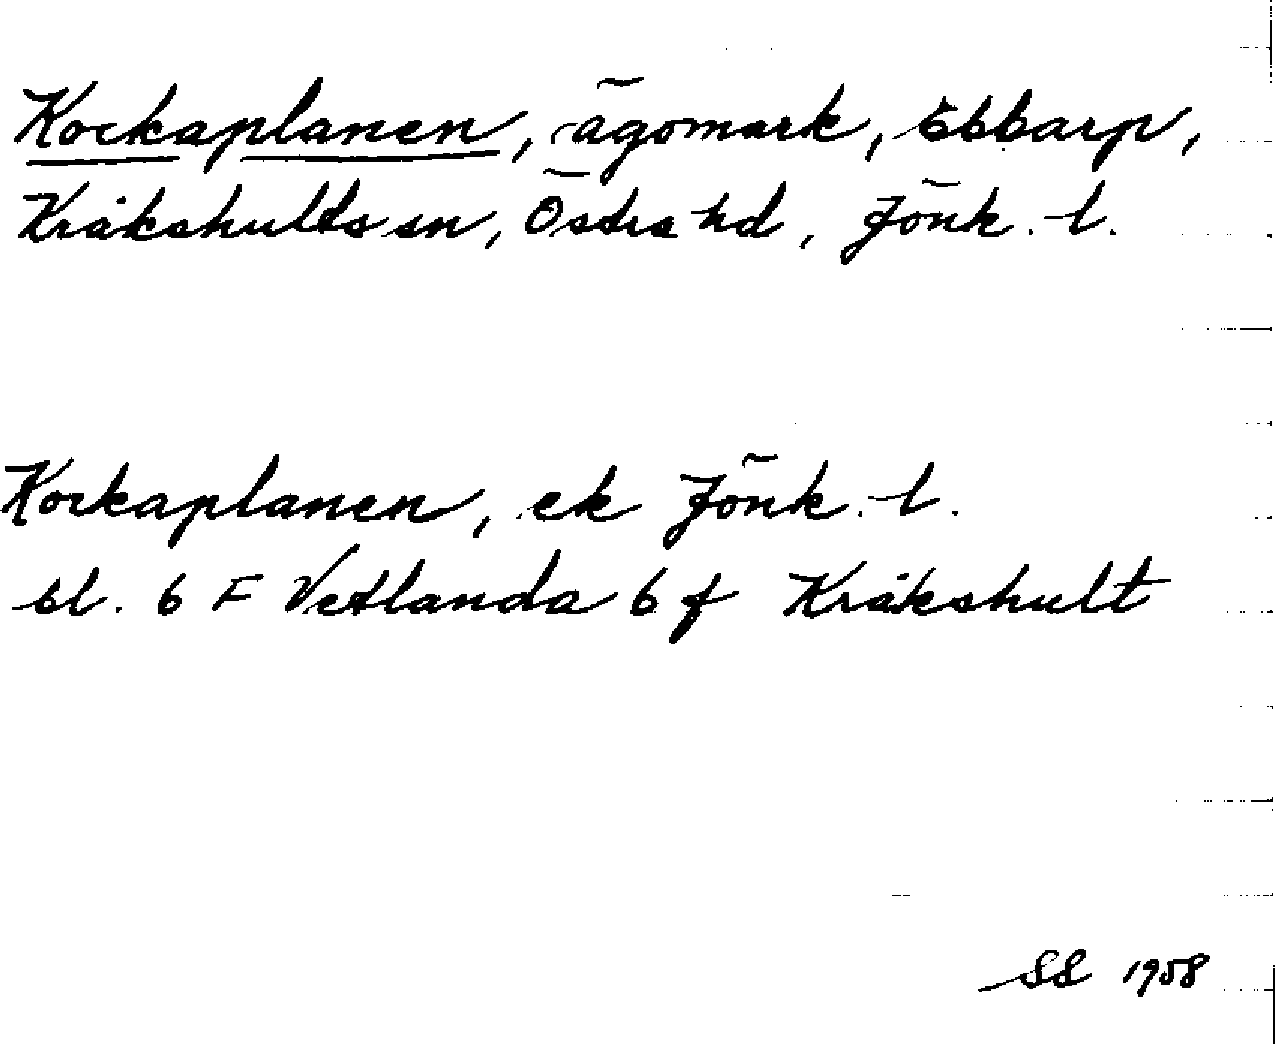 Kockaplanen, ägomark, Ebbarp,
Kråkshults sn, Östra hd, Jönk. l.
Kockaplanen, ek Jönk. l.
bl. 6 F Vetlanda 6 f Kråkshult
SS 1958